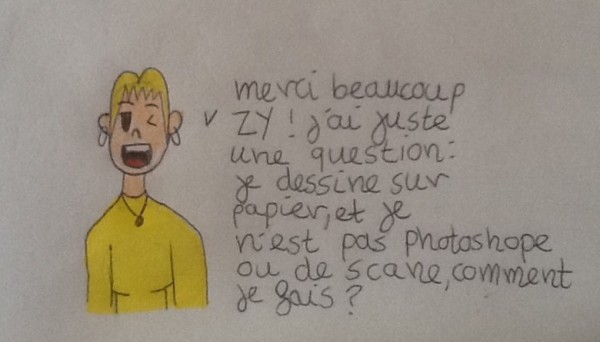 merci beaucoup
ZY ! j'ai juste
une question:
je dessine sur
papier, et je
n'est pas photoshope
ou de scane, comment
je fais ?